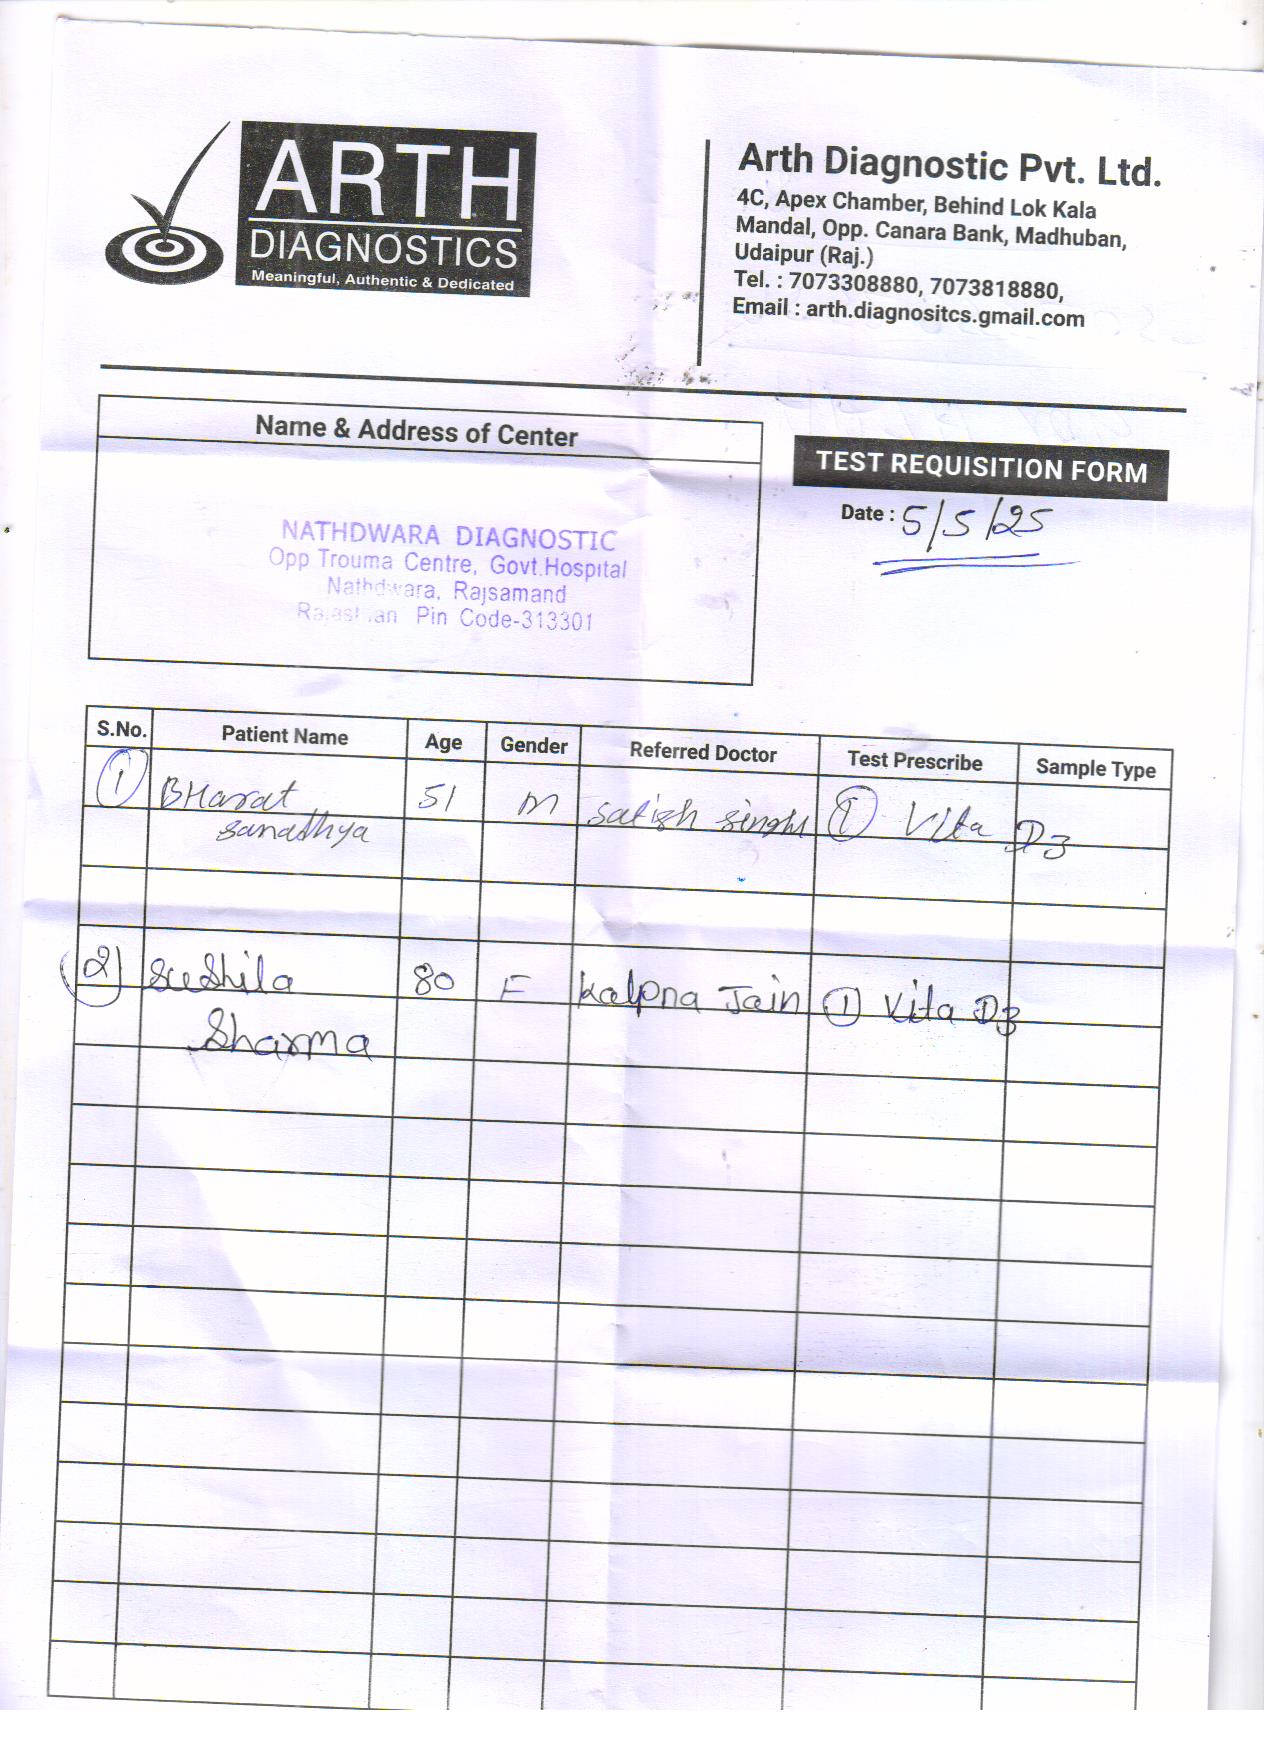 ARTH
DIAGNOSTICS
Meaningful, Authentic & Dedicated
Arth Diagnostic Pvt. Ltd.
4C, Apex Chamber, Behind Lok Kala
Mandal, Opp. Canara Bank, Madhuban,
Udaipur (Raj.)
Tel. : 7073308880, 7073818880,
Email : arth.diagnositcs.gmail.com
Name & Address of Center
NATHDWARA DIAGNOSTIC
Opp Trouma Centre, Govt.Hospital
Nathdwara, Rajsamand
Rajasthan Pin Code-313301
TEST REQUISITION FORM
Date : 5/5/25
S.No. Patient Name Age Gender Referred Doctor Test Prescribe Sample Type
1 BHarat 51 M Satish Singh 1 Vita D3
Sanadhya
2) Sushila 80 F Kalpna Jain 1 Vita D3
Sharma